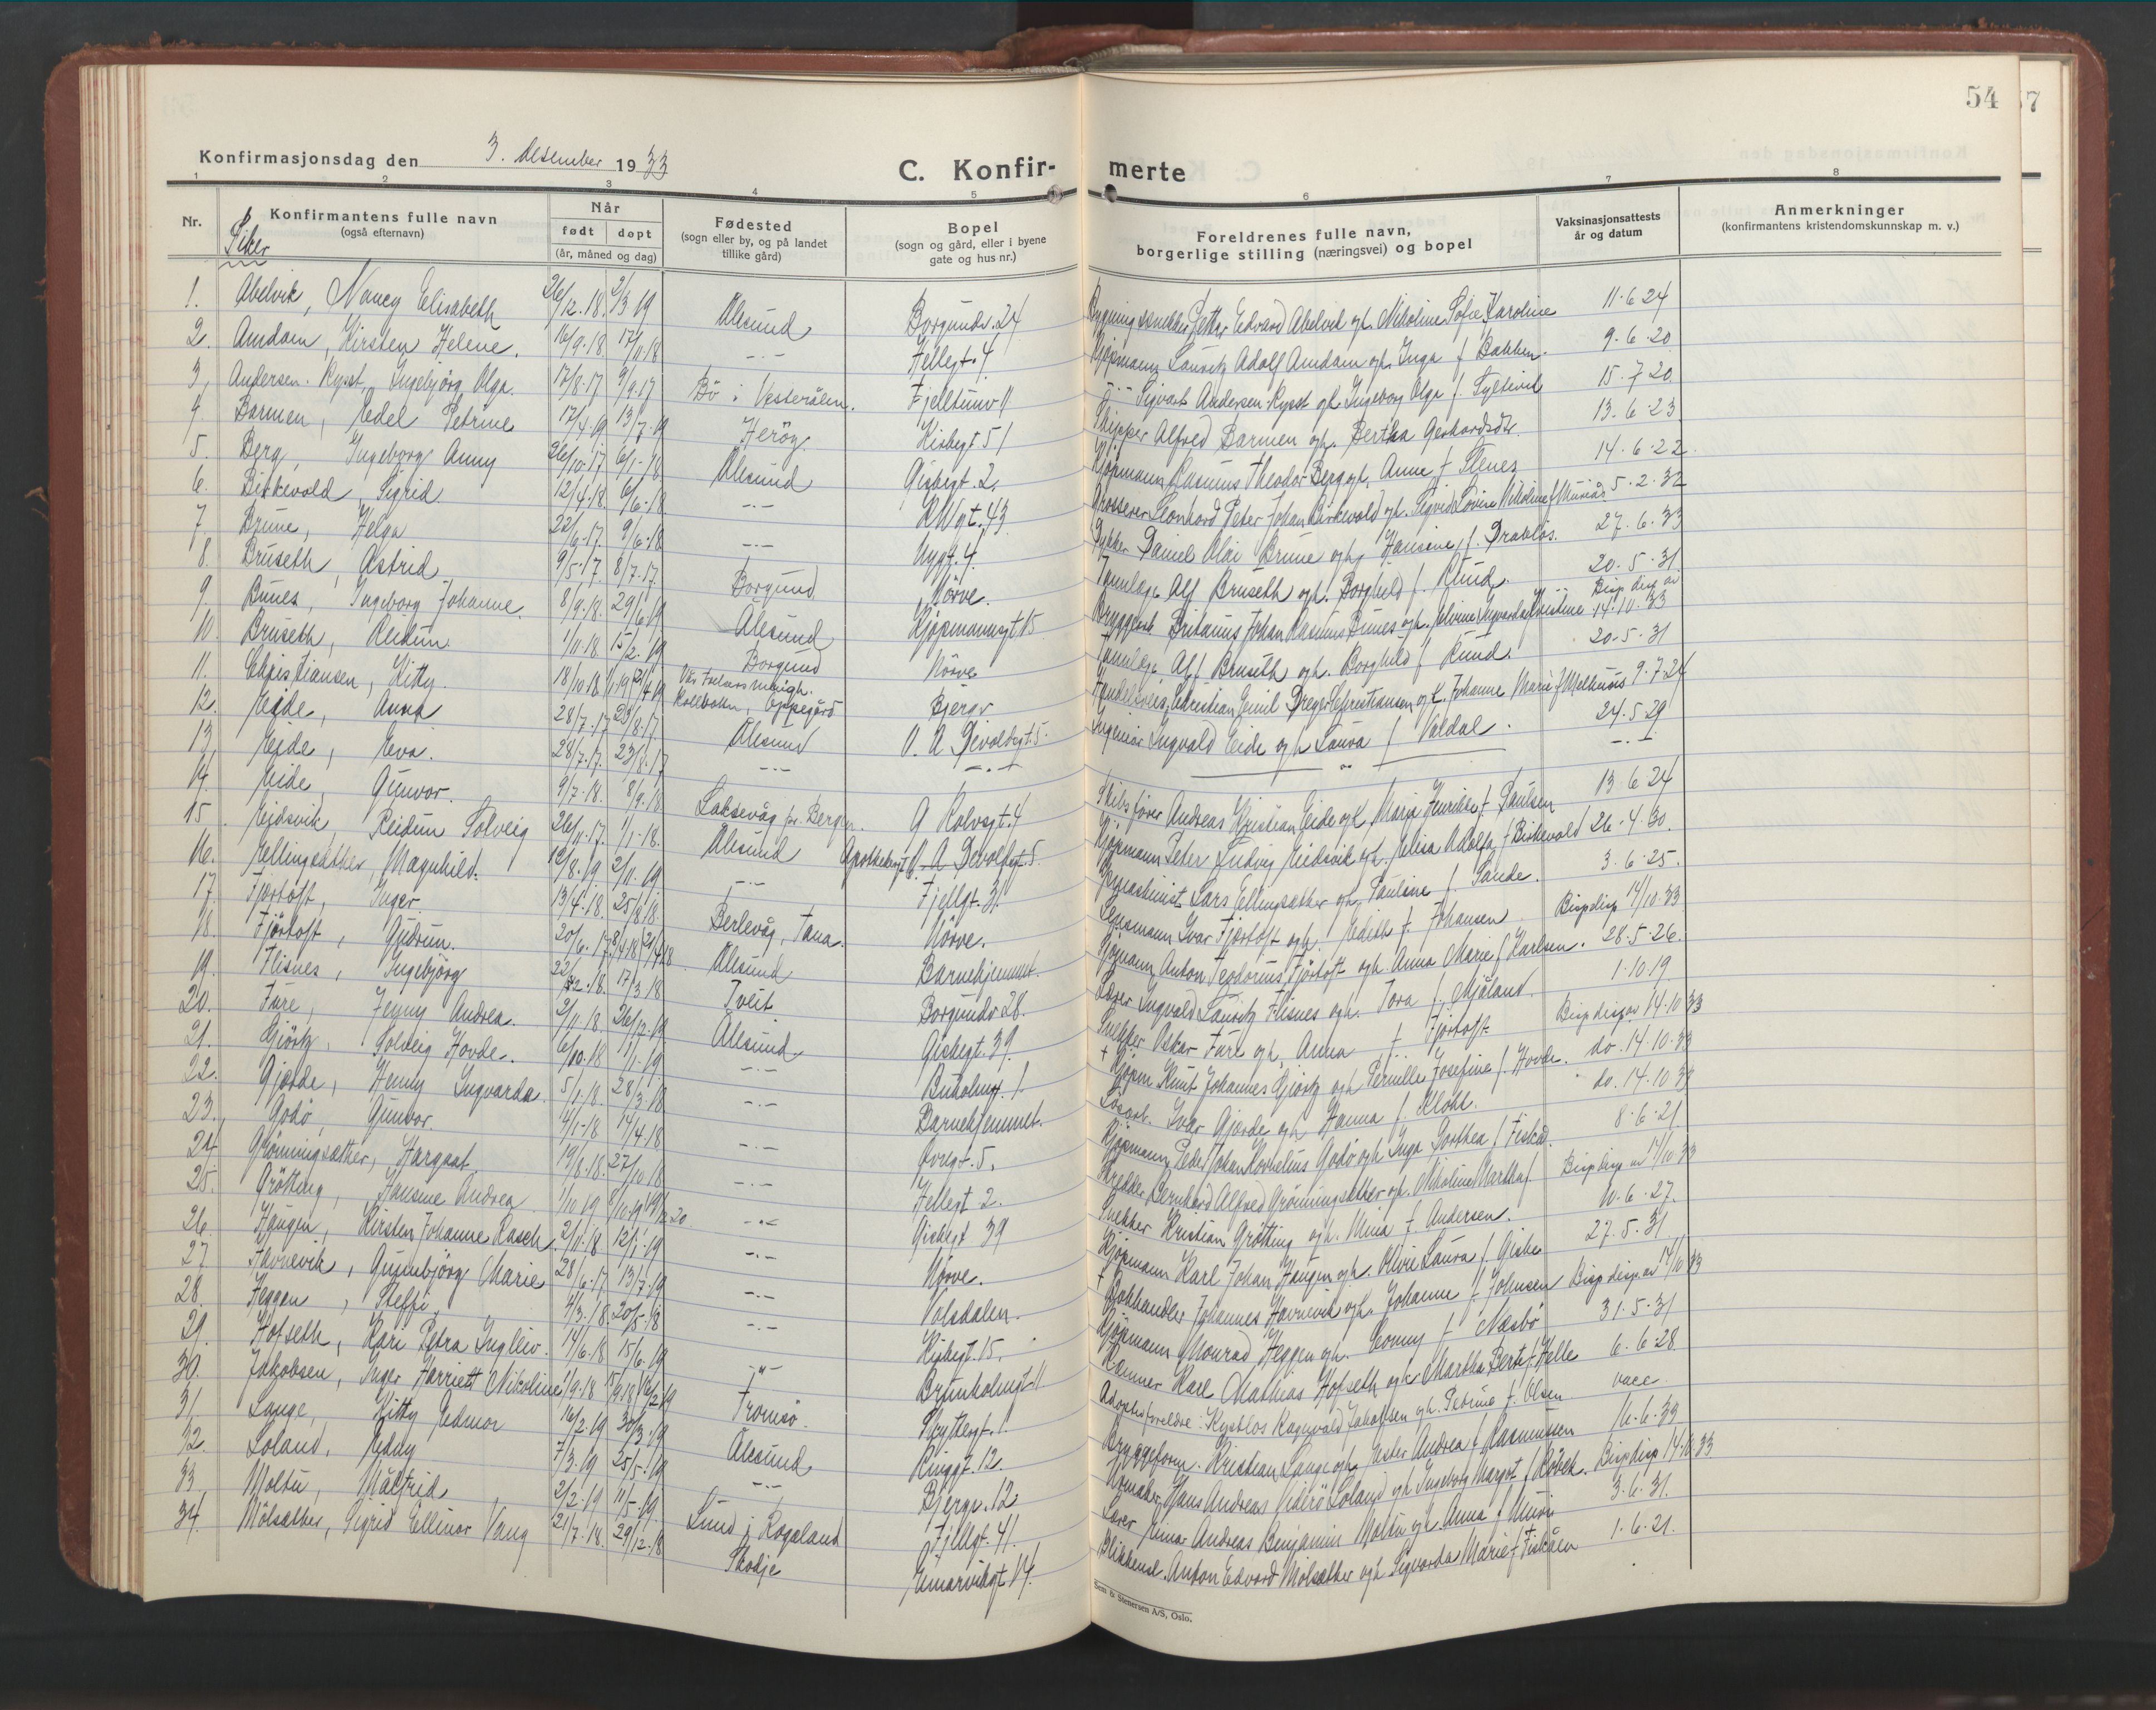 54
Konfirmasjonsdag den 3. desember 1933
C. Konfir- merte
1 2 3 4 5 6 7 8
Nr. Konfirmantens fulle navn (også efternavn) Når født døpt (år, måned og dag) Fødested (sogn eller by, og på landet tillike gård) Bopel (sogn og gård, eller i byene gate og hus nr.) Foreldrenes fulle navn, borgerlige stilling (næringsvei) og bopel Vaksinasjonsattests år og datum Anmerkninger (konfirmantens kristendomskunnskap m. v.)
Piker
1. Abelvik, Nancy Elisabeth 26/12.18. 2/3 19 Ålesund Borgundv. 24 Petter Edvard Abelvik og h. Nikoline Sofie Karoline 11.6 24
2. Amdam, Kirsten Helene. 16/9.18. 17/11.18 -.- Hellegt. 4 Kjøpmann Lauritz Adolf Amdam og h. Inga f. Bakken. 9.6.20
3. Andersen-Rysst, Ingebjörg Olga. 17/8.17 9/9.17 Bö i Vesterålen. Sigvart Andersen-Rysst og h. Ingeborg Olga f. 15.7 20.
4 Barmen, Edel Petrine 17/4.19 13/7.19 Heröy. Kirkegt 51 Skipper Alfred Barmen og h. Bertha Gerhardsdtr. 13.6.23
5. Berg, Ingeborg Anny 26/10.17 6/1.18. Ålesund Giskegt. 2. Kjøpmann Rasmus Theodor Berg og h. Anne f. Stenes 14.6.22.
6. Birkevold, Sigrid 12/4.18. 6/6.18 -.- Grosserer Leonhard Peter Johan Birkevold og h. 5.2.32
7 Brune, Helga 22/6.17. 9/6.18 -.- Nygt. 4. Daniel Olai Brune og h. Hansine f. Drabløs. 27.6.33
8. Bruseth, Astrid 9/5.17. 8/7.17. Borgund Nörve. Tannlæge Alf Bruseth og h. Borghild f. Rund. 20.5.31.
9. Bunes, Ingeborg Johanne. 8/9.18. 29/6.19 Ålesund Kjøpmannsgt 15 Johan Rasmus Bunes og h. Bisp. disp. av 14.10.33
10. Bruseth, Reidun. 1/11.18. 15/2.19 Borgund Nörve Tannlæge Alf Bruseth og h. Borghild f. Rund. 20.5.31
11. Christiansen, Kitty. 18/10 18. Vår Frelsers menigh. Bjergv Christian Emil Dreyer Christiansen og h. Johanne Marie f. Melhuus 9.7.24
12. Eide, Anna 28/7.17 23/8.17. Kolbotn, Oppegård Ålesund O. A. Devoldsgt. 5. Ingeniør Ingvald Eide og h. Laura f. Valdal. 24.5 29
13 Eide, Eva. 28/7.17. 23/8.17 -.- -.- -.-
14. Eide, Gunvor. 9/7.18. 8/9.18 Laksevåg pr. Bergen. G Rolvsgt. 4 Skibsfører Andreas Kristian Eide og h. Marja Henrikke f. Paulsen 13.6 24
15. Eidsvik, Reidun Solveig 26/11.17. 1/1.18. Ålesund O. A Devoldsgt. 5. Kjøpmann Peter Ludvig Eidsvik og h. Elisa Adolfa f. Birkevold 26.4.30.
16. Ellingsæther, Magnhild. 12/8.19 2/11.19. -.- Fjellgt. 31. Lars Ellingsæther og h. Pauline f. Sande. 3.6.25.
17. Fjørtoft, Inger. 13/4.18. 25/8.18. Berlevåg, Tana. Nörve. Ivar Fjørtoft og h. Edith f. Johansen Bisp disp 14/10.33
18. Fjørtoft, Gudrun. 20/6.17 Ålesund Barnehjemmet. Anton Teodorius Fjørtoft og h. Anna Marie f. Karlsen. 28.5.26.
19. Flisnes, Ingebjörg 17/3 18 Tveit Borgundv 28. Lærer Ingvald Lauritz Flisnes og h. Tora f. Mjåland. 1.10.19.
20. Fure, Jenny Andrea. 2/11.18. 26/12.19. Ålesund Giskegt. 39. Snekker Oskar Fure og h. Anna f. Fjørtoft Bisp disp av 14.10.33
21. Gjörtz, Solveig Hovde. 6/10.18 1/1.19 -.- Buholmg. 1. + Kjøpm. Knut Johannes Gjörtz og h. Pernille Josefine f. Hovde. do. 14.10.33
22. Gjærde, Henny Ingvarda 5/1.18. 28/3.18 -.- Barnehjemmet. Løsarb. Ivar Gjærde og h. Hanna f. do. 14.10 33
23. Godö, Gunvor. 4/1.18 14/4.18 -.- Øvregt. 5. Kjøpmann Peder Johan Kornelius Godö og h. Inga Dorthea f. Fiskå. 8.6.21
24 Grönningsæther, Margaat. 19/8.18. 27/10.18 -.- Hellegt 2. Skredder Bernhard Alfred Grönningsæther og h. Nikoline Martha f. Bisp disp av 14/10.33
25. Grötting, Hansine Andrea 1/10 19 -.- Giskegt 39 Snekker Kristian Grötting og h. Mina f. Andersen. 10.6.27.
26. Haugen, Kirsten Johanne Rasch 2/11.18 12/1.19 -.- Nörve. Kjøpmann Karl Johan Haugen og h. Olivie Laura f. Giske 27.5.31
27 Havnevik, Gunnbjörg Marie 28/6.17. 13/7.19 -.- Volsdalen. + Bokhandler Johannes Havnevik og h. Johanne f. Johnsen Bisp disp. av 14/10 33
28. Heggen, Steffi. 4/3.18. 20/5.18 -.- Kirkegt. 15. Kjøpmann Monrad Heggen og h. Conny f. Næsbö 31.5.31
29. Hofseth, Kari Petra Ingleiv. 14/6.18 15/6.19 -"- Brunholmgt 11 Karl Mathias Hofseth og h. Martha Berte f. Helle 6.6.28.
30. Jakobsen, Inger Harriett Nikoline 1/9.18 Tromsö. Skyttergt. 1. Adoptivforeldre: Kystlos Ragnvald Jakobsen og h. Petrine f. Olsen. vacc.
31 Lange, Kitty Edmor 16/2.19 30/3.19 Ålesund Ringgt. 12. Bryggeform. Kristian Lange og h. Ester Andrea f. Rasmussen 16.6.33
32. Loland, Edny 7/3.19 25/5.19 -.- Bjergv. 12 Urmaker Hans Andreas Loland og h. Ingeborg Margot f. Röbek. Bisp disp 14.10.33
33 Moltu, Målfrid 2/2.19 11/5.19. Lund i Rogaland Fjellgt. 41. Lærer Einar Andreas Benjamin Moltu og h. Anna f. 3.6.31.
34. Molsæther, Sigrid Ellinor Vang 21/7.18. 29/12.18 Skodje Einarvikgt 14. Blikkensl. Anton Edvard Molsæther og h. Sigvarda Marie f. Fiskåen 1.6.21.
Sem & Stenersen A/S, Oslo.